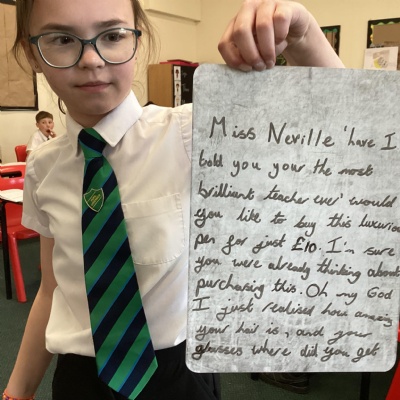 Miss Neville 'have I
told you your the most
brilliant teacher ever' would
you like to buy this luxurious
pen for just £10. I'm sure
you were already thinking about
purchasing this. Oh my God
I just realised how amazing
your hair is, and your
glasses where did you get